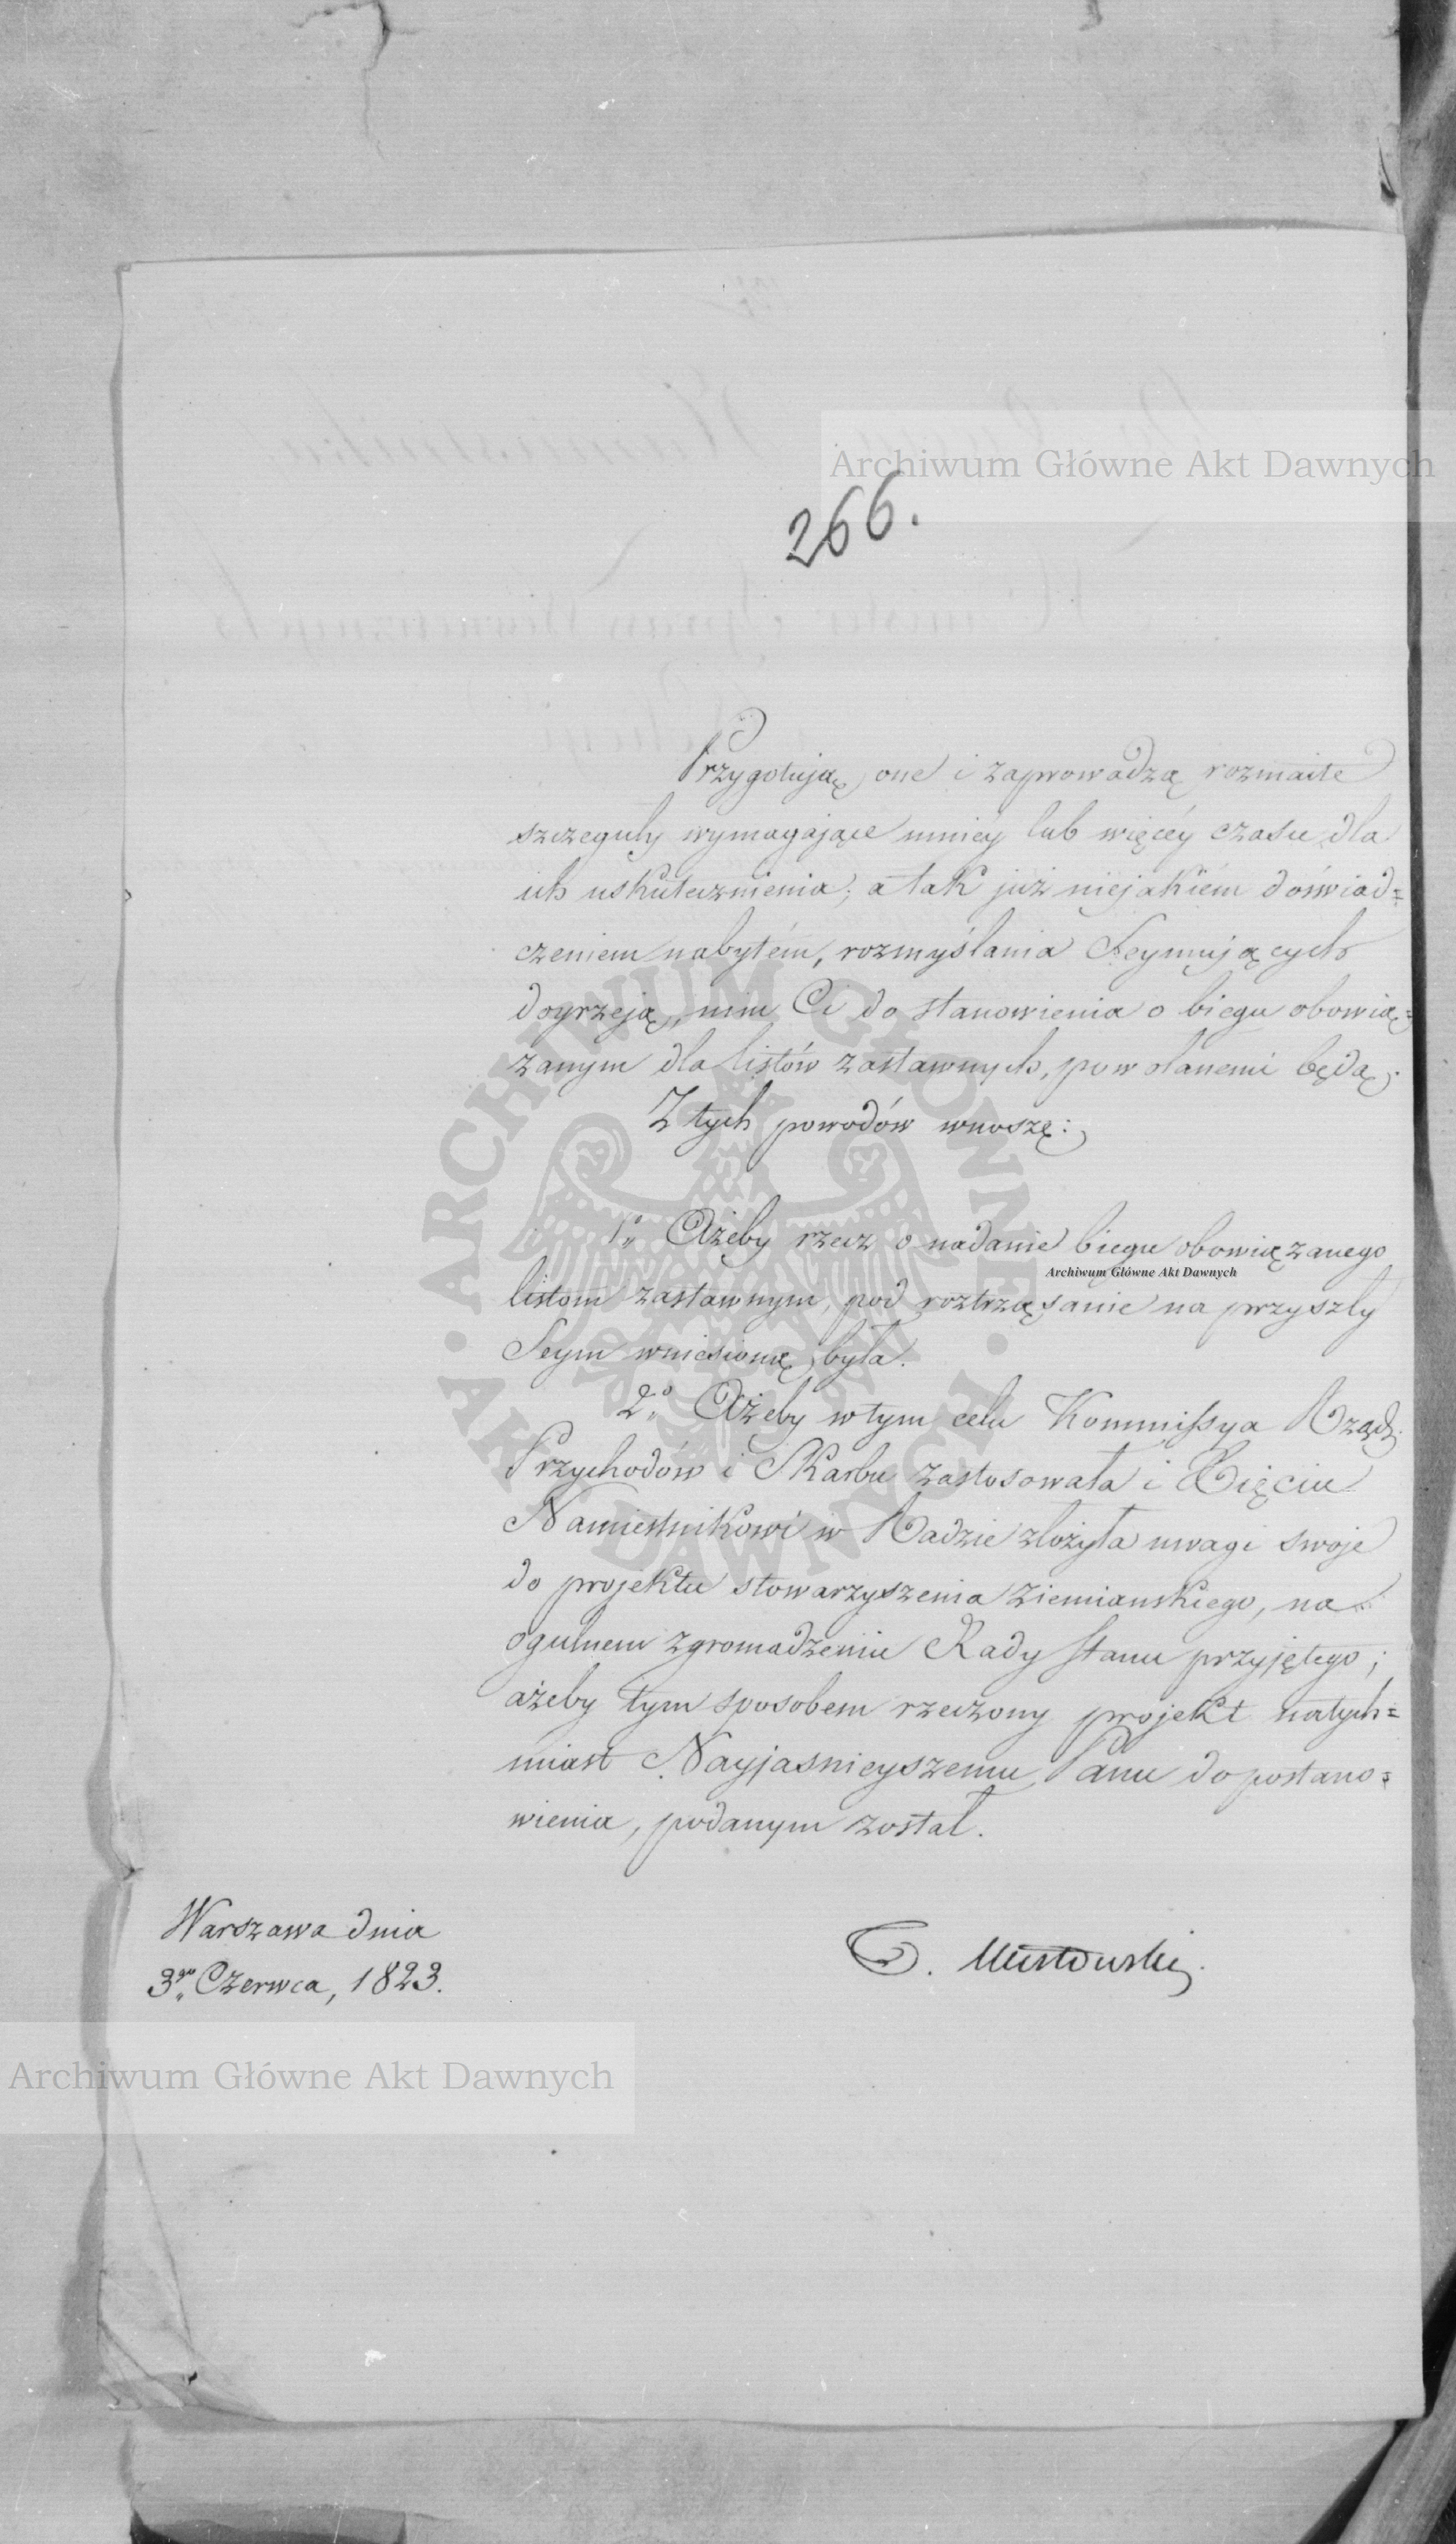 Archiwum Główne Akt Dawnych
266.
Przygotują one i zaprowadzą rozmaite
szczeguły wymagające mniéy lub więcéy czasu dla
ich uskutecznienia; a tak już niejakiém doświad=
czeniem nabytém, rozmyślania Seymujących
dojrzeją, nim Ci do stanowienia o biegu obowią=
zanym dla listów zastawnych, powołanemi będą.
Z tych powodów wnoszę:
1o Ażeby rzecz o nadanie biegu obowiązanego
Archiwum Główne Akt Dawnych
listom zastawnym, pod roztrząsanie na przyszły
Seym wniesioną była.
2o Ażeby w tym celu Kommissya Rządz.
Przychodów i Skarbu zastosowała i Xięciu
Namiestnikowi w Radzie złożyła uwagi swoje
do projektu stowarzyszenia ziemianskiego, na
ogulnem zgromadzeniu Rady Stanu przyjętego;
ażeby tym sposobem rzeczony projekt natych=
miast Nayjasnieyszemu Panu do postano=
wienia, podanym został.
Warszawa dnia
3go Czerwca, 1823.
T. Mostowski.
Archiwum Główne Akt Dawnych
ARCHIWUM GŁÓWNE · AKT DAWNYCH ·